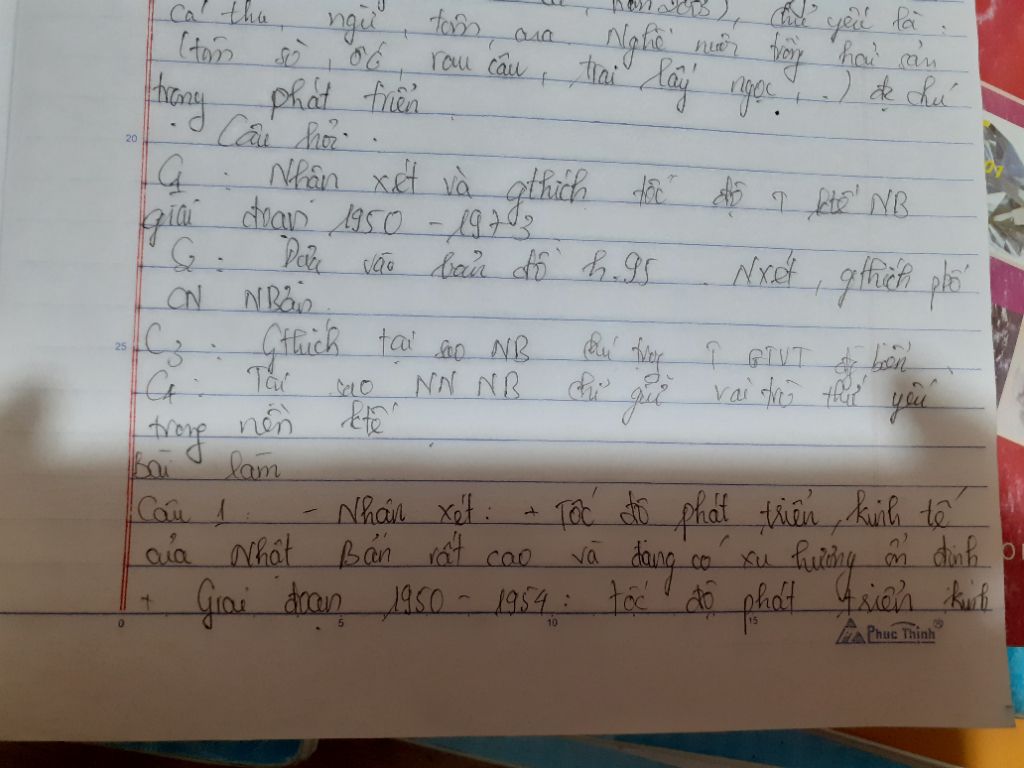 cá thu, ngừ, tôm, cua. Nghề nuôi trồng hải sản
(tôm sò, ốc, rau câu, trai lấy ngọc,.) đc chú
trọng phát triển
20
Câu hỏi.
C1: Nhận xét và gthích tốc độ ↑ ktế NB
giai đoạn 1950 - 1973
C2: Dựa vào bản đồ h.95. Nxét, gthích phố
CN NBản
25
C3: Gthích tại sao NB chú trọng ↑ GTVT đg biển
C4: Tại sao NN NB chỉ giữ vai trò thứ yếu
trong nền ktế
Bài làm
Câu 1: - Nhận xét: + Tốc độ phát triển, kinh tế
của Nhật Bản rất cao và đang có xu hướng ổn định
+ Giai đoạn 1950 - 1954: tốc độ phát triển kinh
0 5 10 15
Phuc Thinh®